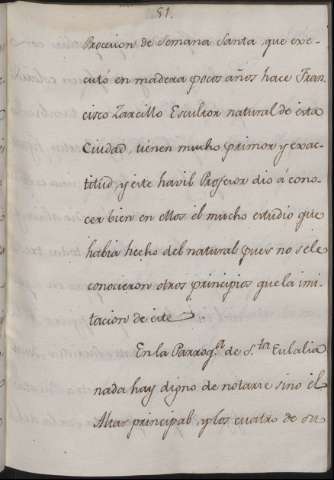 81.
Procesion de Semana Santa, que exe-
cutó en madera pocos años hace Fran-
cisco Zarcillo Escultor natural de esta
Ciudad, tienen mucho primor y exac-
titud, y este havil Profesor dio á cono-
cer bien en ellos el mucho estudio que
habia hecho del natural pues no se le
conocieron otros principios que la imi-
tacion de este.
En la Parrog.^l de S.^ta Eulalia
nada hay digno de notarse sino el
Altar principal, y los cuatro de su